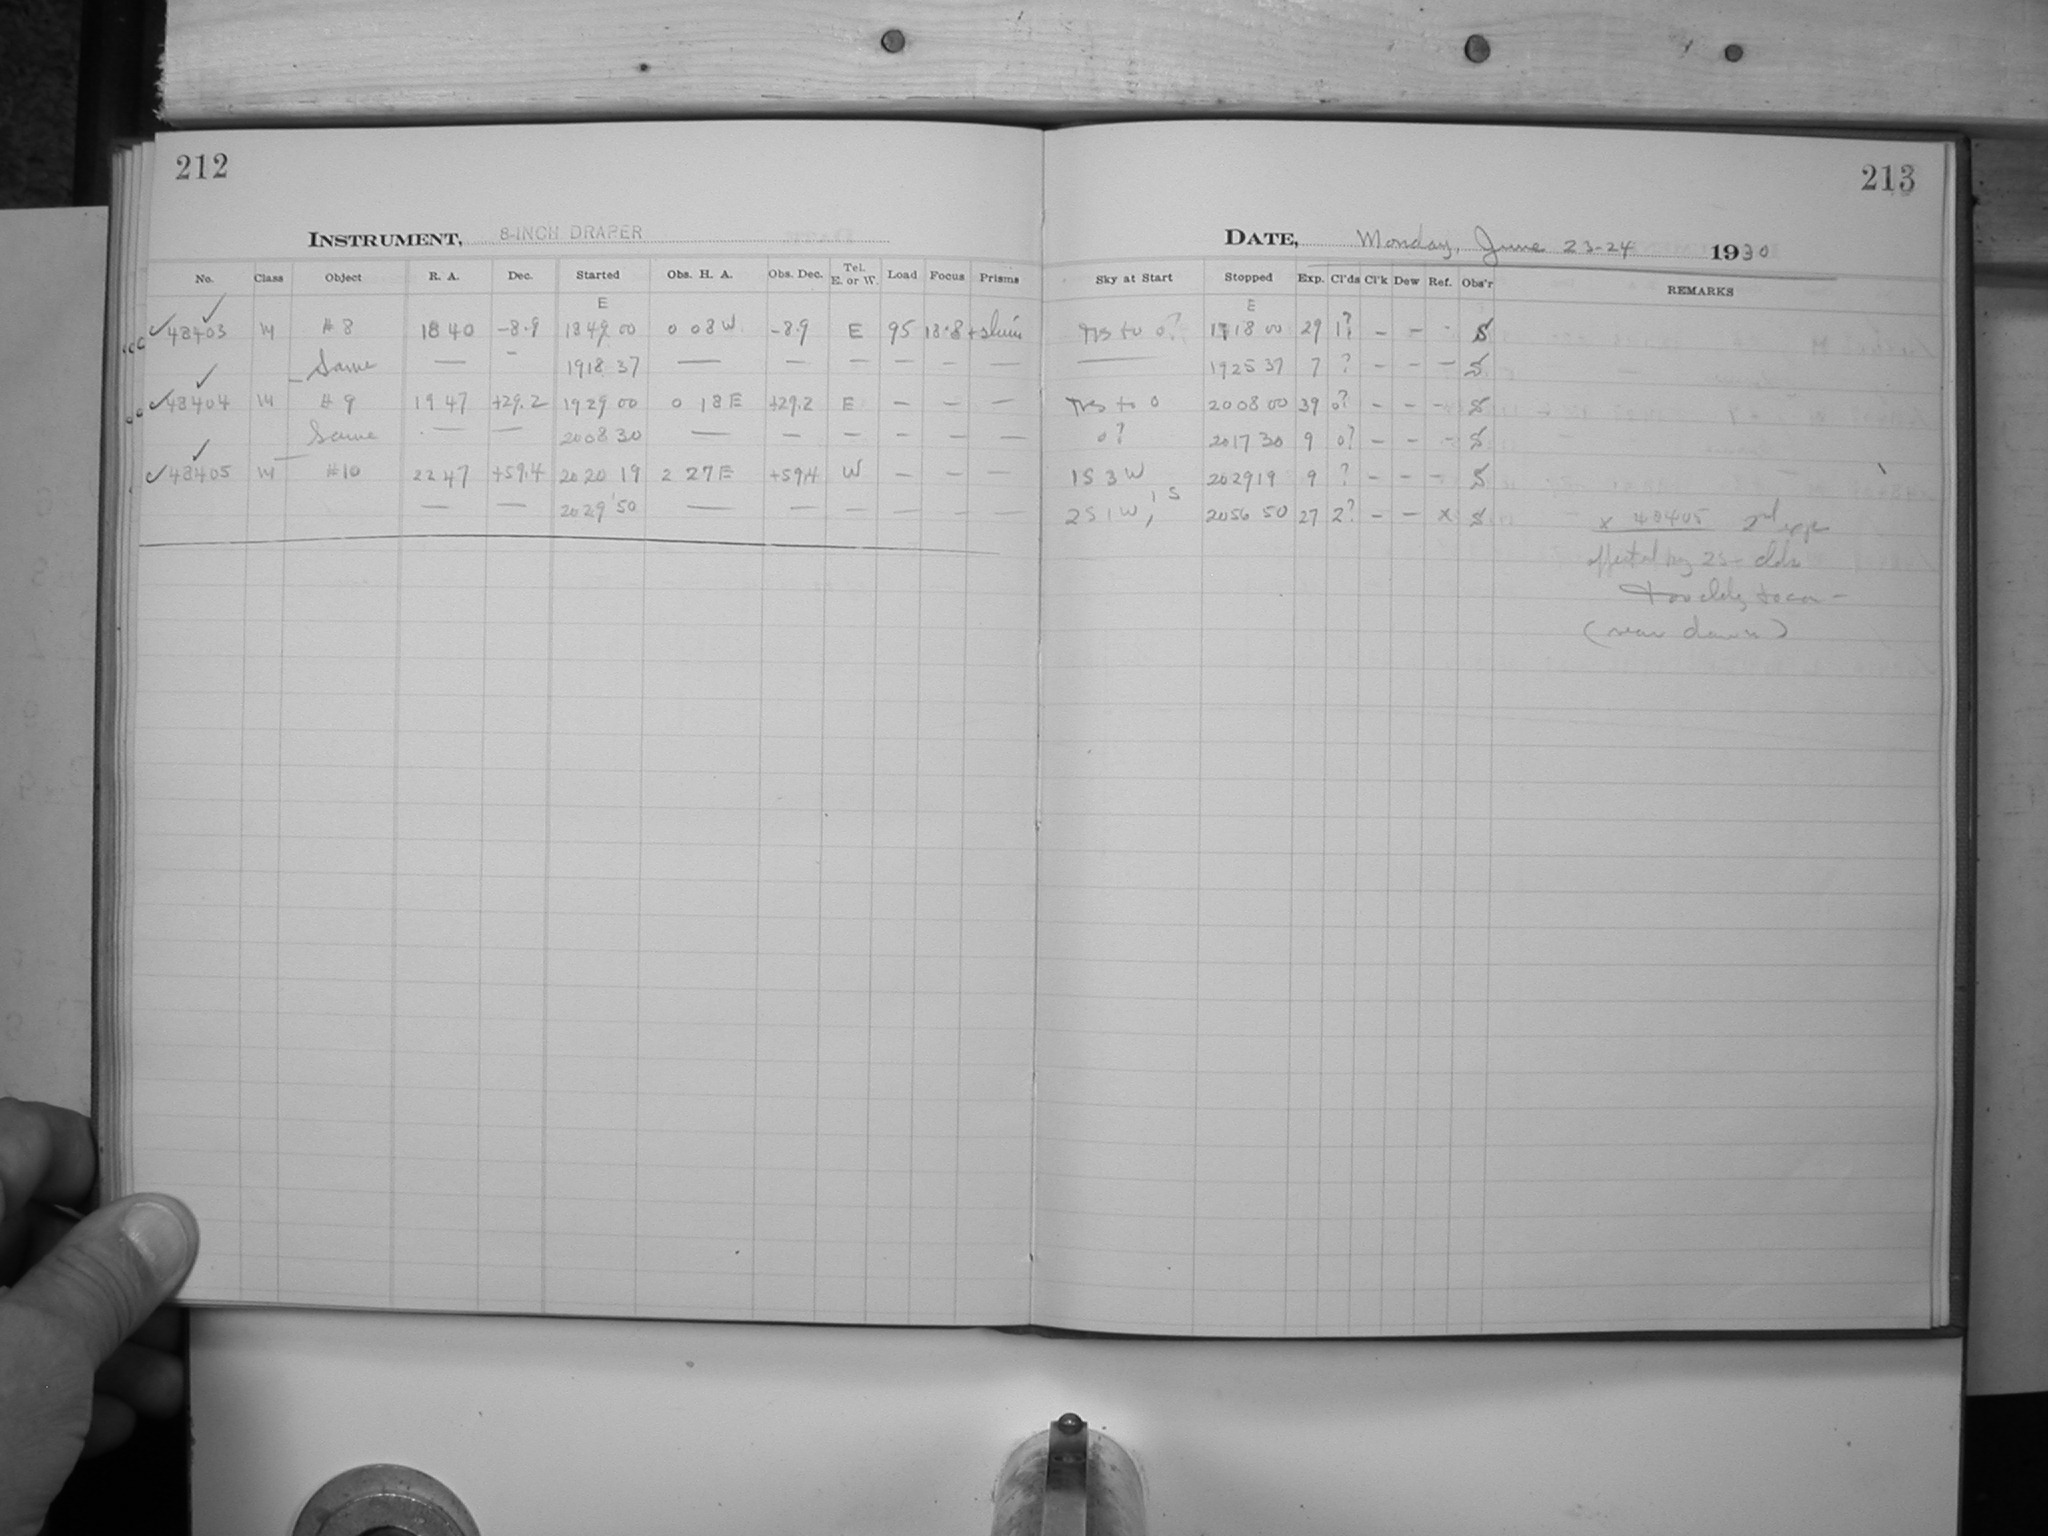 212
INSTRUMENT, 8-INCH DRAPER
No. Class Object R. A. Dec. Started Obs. H. A. Obs. Dec. Tel. E. or W. Load Focus Prisms
E
✓48403 M #8 18 40 -8.9 1849 00 0 08 W -8.9 E 95 13.8
Same — - 1918 37 — — — — — —
✓48404 M #9 19 47 +29.2 1929 00 0 18 E +29.2 E — — —
Same — — 2008 30 — — — — — —
✓48405 M #10 22 47 +59.4 2020 19 2 27 E +59.4 W — — —
— — 2029 50 — — — — — —
213
DATE, Monday, June 23-24 1930
Sky at Start Stopped Exp. Cl'ds Cl'k Dew Ref. Obs'r REMARKS
E
to 0? 1918 00 29 1? — — - S
— 1925 37 7 ? — — — S
to 0 2008 00 39 0? — — — S
0? 2017 30 9 0? — — — S
1S 3W 2029 19 9 ? — — — S
2S 1W, 1S 2056 50 27 2? — — x S x 48405 2nd exp
affected by 2S+ clds
(near dawn)